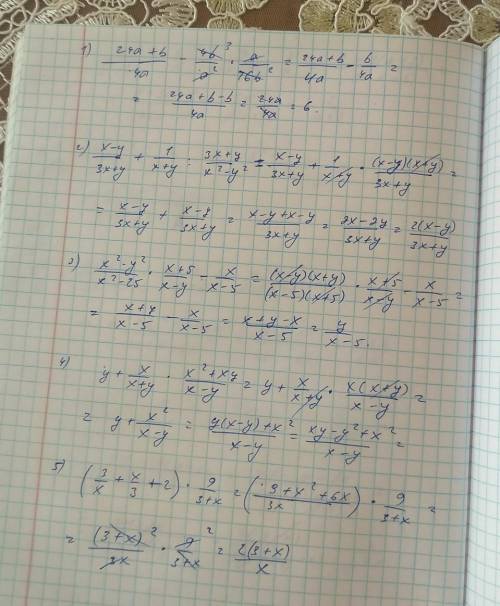 1) (24a+b)/(4a) - (4b³)/(a²) · a/(16b²) = (24a+b)/(4a) - b/(4a) =
= (24a+b-b)/(4a) = (24a)/(4a) = 6.
2) (x-y)/(3x+y) + 1/(x+y) : (3x+y)/(x²-y²) = (x-y)/(3x+y) + 1/(x+y) · ((x-y)(x+y))/(3x+y) =
= (x-y)/(3x+y) + (x-y)/(3x+y) = (x-y+x-y)/(3x+y) = (2x-2y)/(3x+y) = (2(x-y))/(3x+y)
3) (x²-y²)/(x²-25) · (x+5)/(x-y) - x/(x-5) = ((x-y)(x+y))/((x-5)(x+5)) · (x+5)/(x-y) - x/(x-5) =
= (x+y)/(x-5) - x/(x-5) = (x+y-x)/(x-5) = y/(x-5).
4) y + x/(x+y) · (x²+xy)/(x-y) = y + x/(x+y) · (x(x+y))/(x-y) =
= y + x²/(x-y) = (y(x-y)+x²)/(x-y) = (xy-y²+x²)/(x-y) =
5) (3/x + x/3 + 2) · 9/(3+x) = ((9+x²+6x)/(3x)) · 9/(3+x) =
= (3+x)²/(3x) · 9/(3+x) = (2(3+x))/x